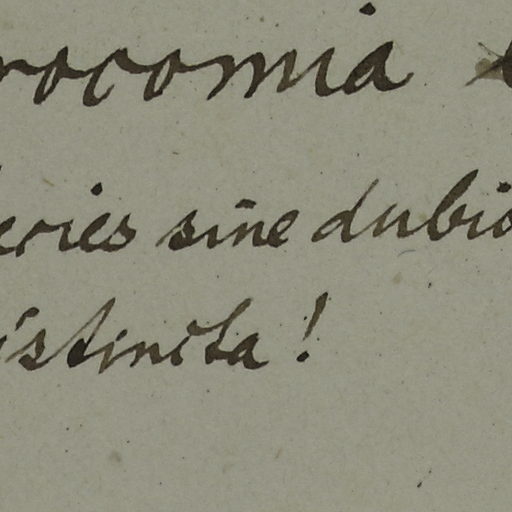 rocomia
eries sine dubio
istincta!